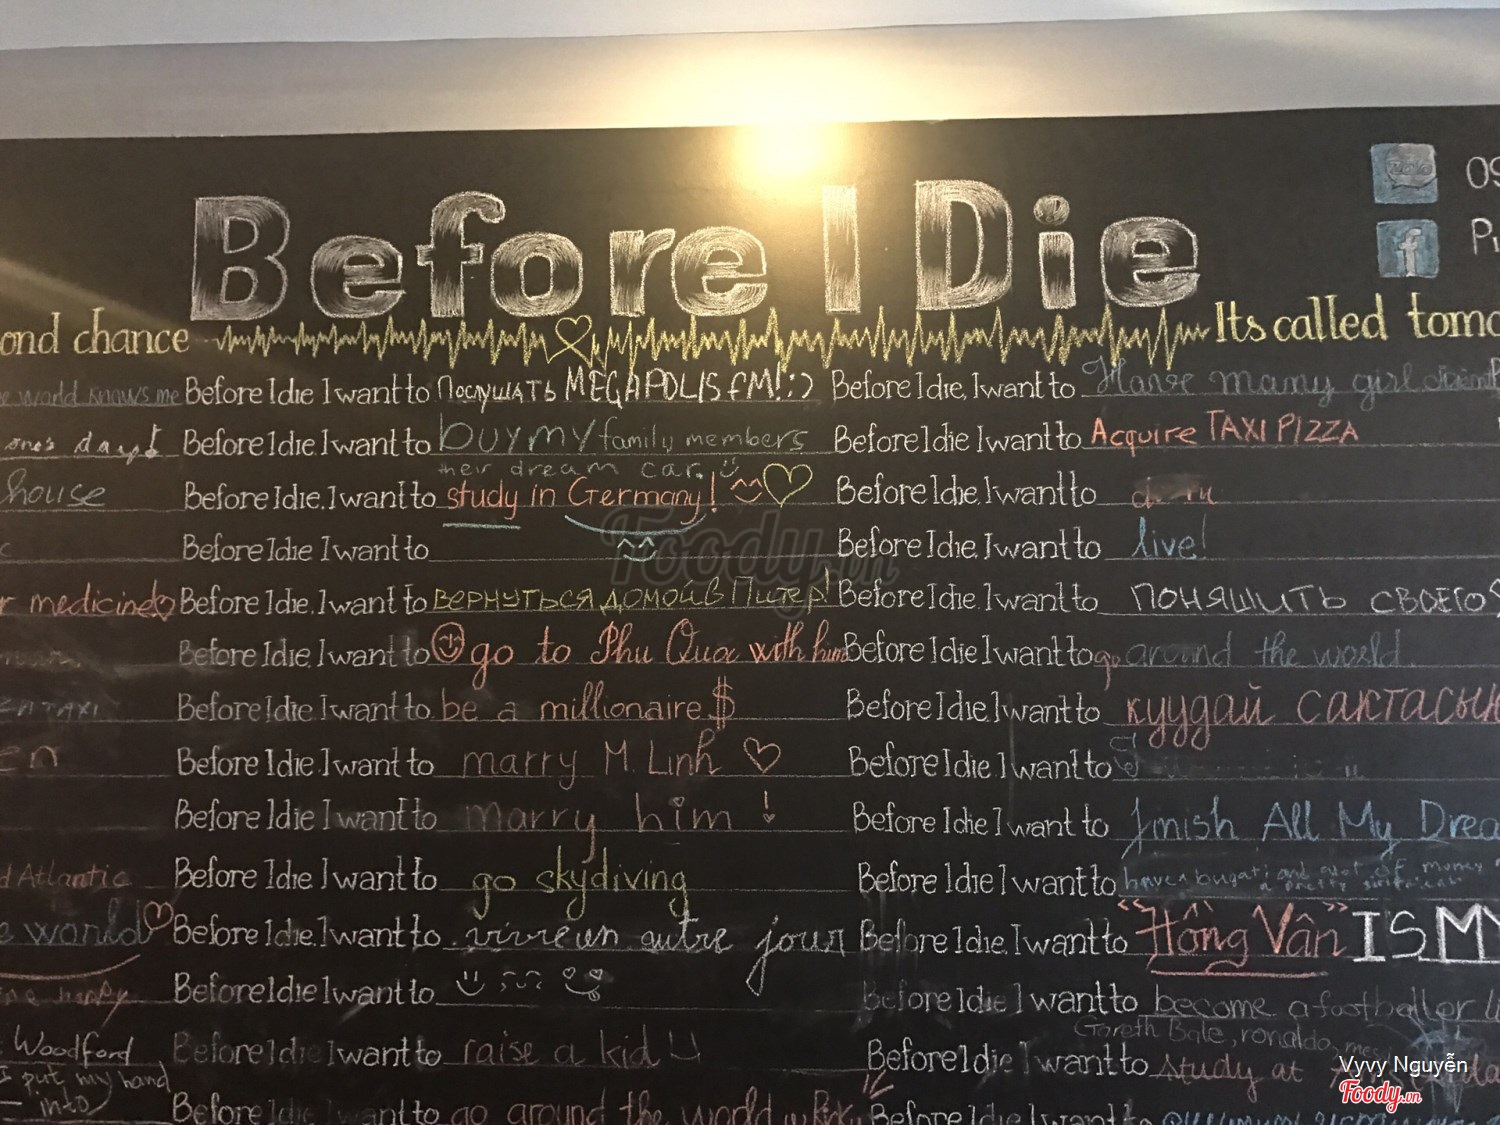 Before I Die
OS
Pi
ond chance
Its called tomo
world knows me
Before I die I want to Послушать MEGAPOLIS FM! ;)
Before I die, I want to Have many girl
one's day!
Before I die I want to buy my family members
their dream car.
Before I die I want to Acquire TAXI PIZZA
house
Before I die, I want to study in Germany!
Before I die, I want to
Before I die I want to
Before I die, I want to live!
r medicine
Before I die, I want to вернуться домой в Питер!
Before I die, I want to поняшить своего
Before I die, I want to go to Phu Quoc with him
Before I die I want to go around the world.
TAXI
Before I die I want to be a millionaire $
Before I die I want to куудай сактасын
en
Before I die, I want to marry M. Linh
Before I die, I want to
Before I die I want to marry him!
Before I die I want to finish All My Drea
d Atlantic
Before I die I want to go skydiving
Before I die I want to have a bugati and of money
a pretty
e world
Before I die, I want to vivre un autre jour
Before I die, I want to "Hồng Vân" IS MY
happy
Before I die I want to
Before I die I want to become a footballer li
Gareth Bale, ronaldo, me
Woodford
Before I die I want to raise a kid
Before I die I want to study at
I put my hand
into
Before I die I want to go around the world w Ricky
Before I die I want to
Vyvy Nguyễn
Foody.vn
Foody.vn